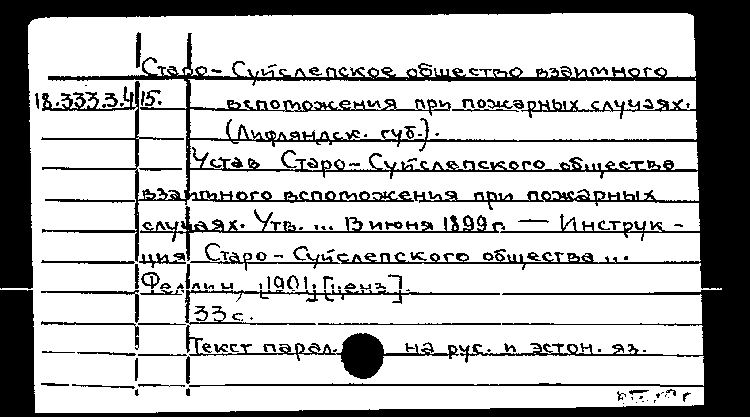 Старо-Суйслепское общество взаимного
18.333.3.415. вспоможения при пожарных случаях.
(Лифляндск. губ.).
Устав Старо-Суйслепского общества
взаимного вспоможения при пожарных
случаях. Утв. ... 13 июня 1899 г. — Инструк-
ция Старо-Суйслепского общества ...
Феллин, [1901; [ценз].
33 с.
Текст парал. на рус. и эстон. яз.